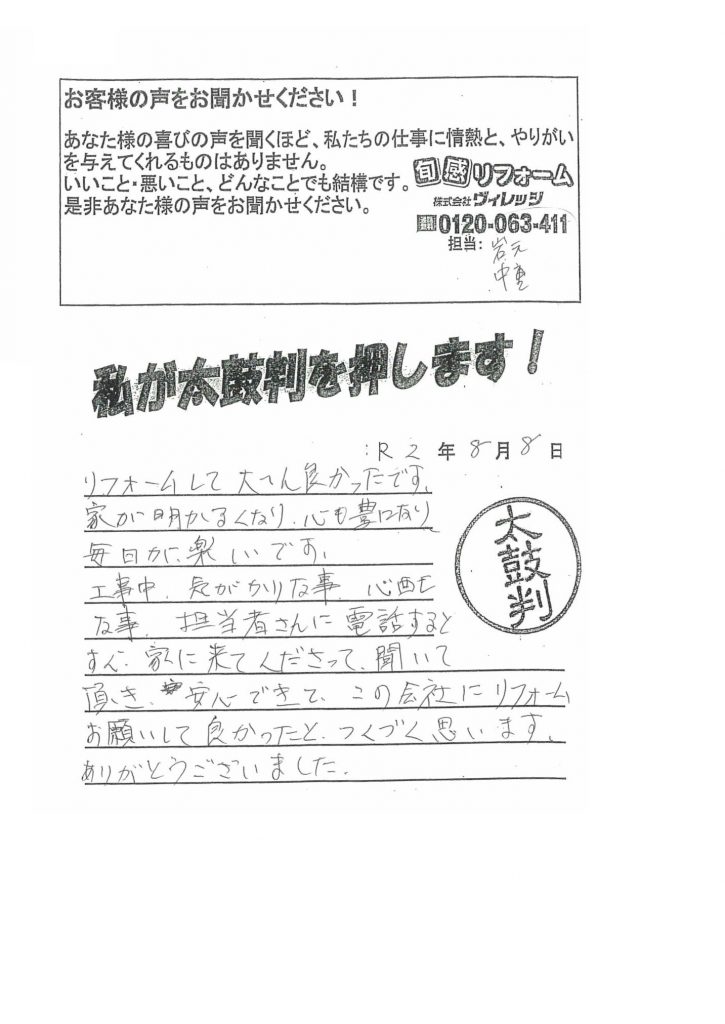 お客様の声をお聞かせください！
あなた様の喜びの声を聞くほど、私たちの仕事に情熱と、やりがい
を与えてくれるものはありません。
いいこと・悪いこと、どんなことでも結構です。
是非あなた様の声をお聞かせください。
旬感リフォーム
株式会社ヴィレッジ
0120-063-411
担当：岩元
中
私が太鼓判を押します！
:R 2 年 8 月 8 日
リフォームして 大へん良かったです。
家が明かるくなり、心も豊になり
毎日が楽しいです。
工事中、気がかりな事、心配
な事、担当者さんに電話すると
すぐ、家に来てくださって、聞いて
頂き、安心できて、この会社にリフォーム
お願いして良かったと、つくづく思います。
ありがとうございました。
太鼓判